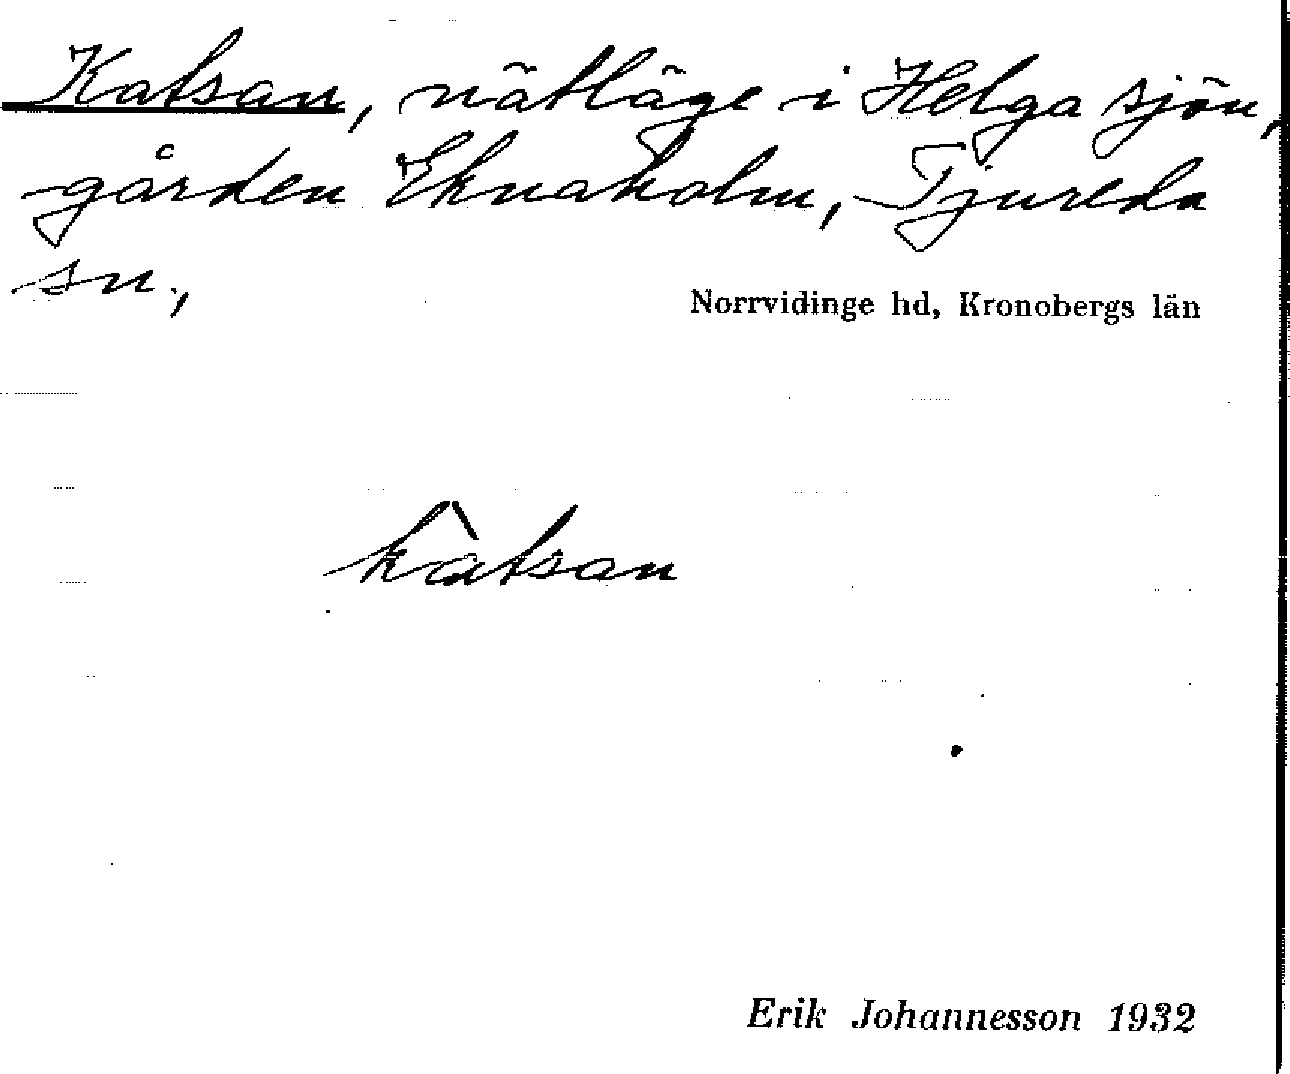 Katsan, nätläge i Helga sjön,
gården Eknaholm, Tjureda
sn.,
Norrvidinge hd, Kronobergs län
kàtsan
Erik Johannesson 1932